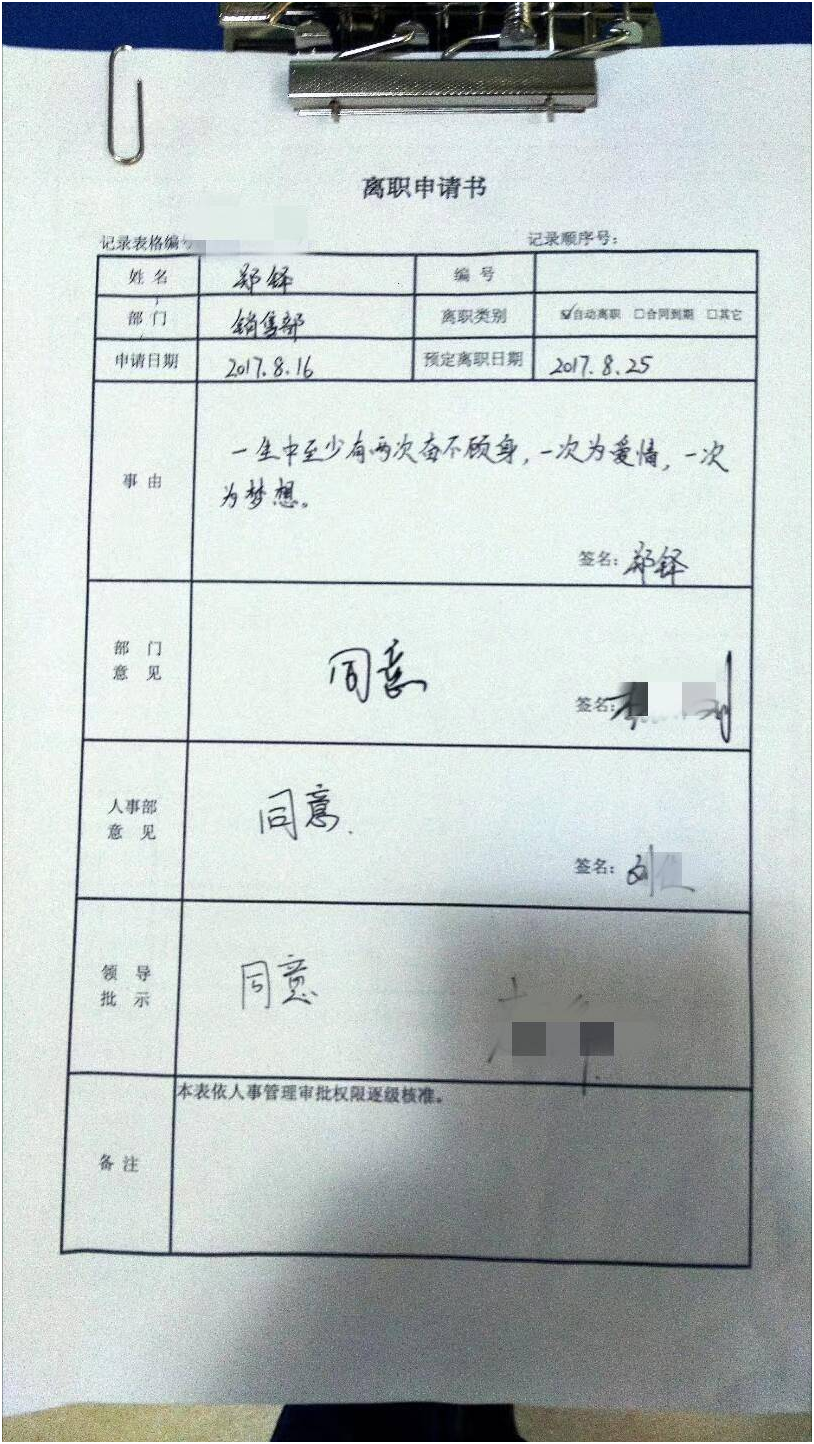 离职申请书
记录表格编号 记录顺序号：
姓名 郑铎 编号
部门 销售部 离职类别 ☑自动离职 □合同到期 □其它
申请日期 2017.8.16 预定离职日期 2017.8.25
事由
一生中至少有两次奋不顾身，一次为爱情，一次
为梦想。
签名：郑铎
部门
意见
同意
签名：
人事部
意见
同意.
签名：刘
领导
批示
同意
本表依人事管理审批权限逐级核准。
备注